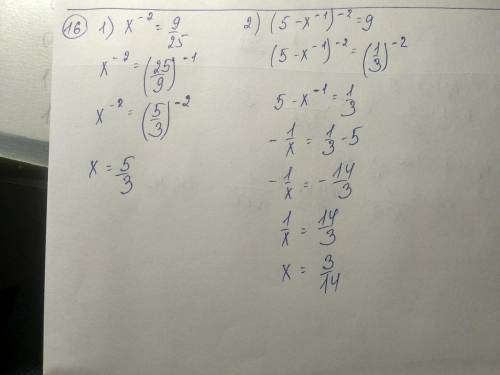 16 1) x⁻² = 9/25
x⁻² = (25/9)⁻¹
x⁻² = (5/3)⁻²
x = 5/3
2) (5 - x⁻¹)⁻² = 9
(5 - x⁻¹)⁻² = (1/3)⁻²
5 - x⁻¹ = 1/3
- 1/x = 1/3 - 5
- 1/x = - 14/3
1/x = 14/3
x = 3/14